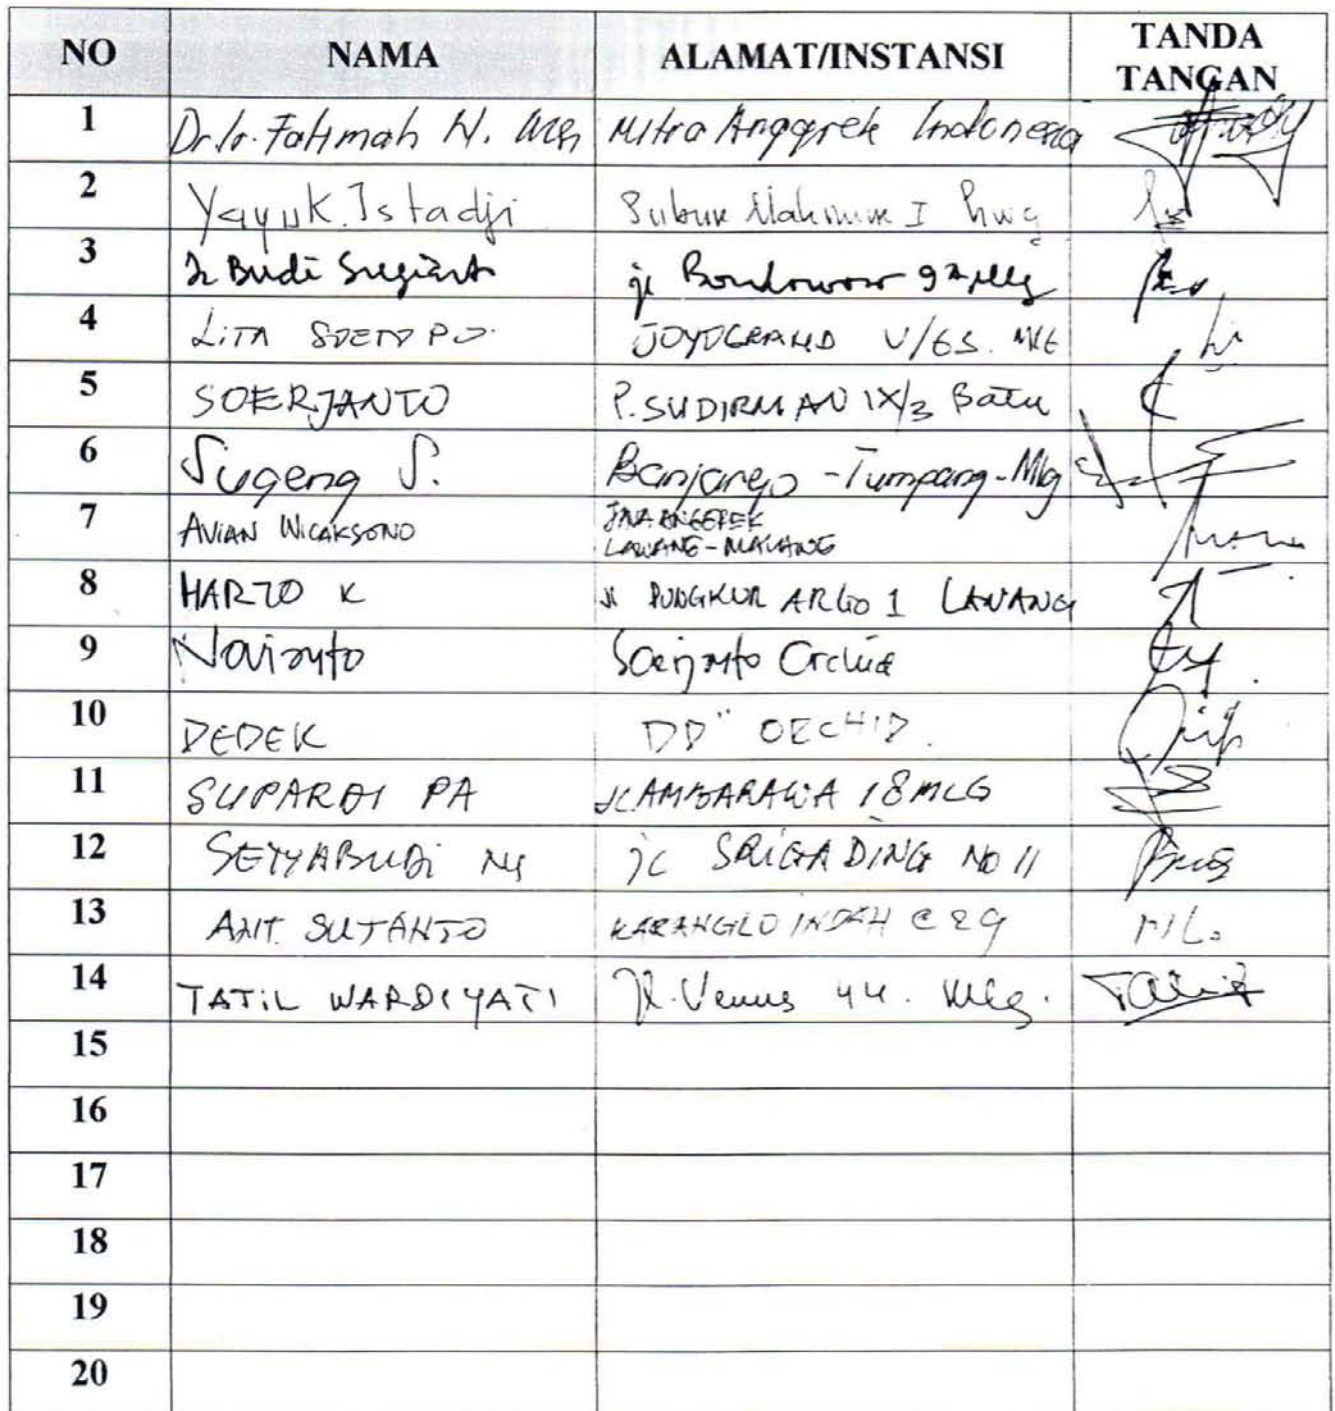 NO NAMA ALAMAT/INSTANSI TANDA TANGAN
1 Dr. Ir. Fatimah N. Mitra Anggrek Indonesia
2 Yayuk. Istadji Subur I
3 Ir Budi Sugiarto jl Bondowoso 9
4 LITA SOETOPO. JOYOGRAND V/65. MLG
5 SOERJANTO P. SUDIRMAN IX/3 Batu
6 Sugeng S. Banjarejo - Tumpang - Mlg
7 AVIAN WICAKSONO ANGGREK
LAWANG - MALANG
8 HARTO K Jl PUNGKUR ARGO 1 LAWANG
9 Novianto Soerjanto Orchid
10 DEDEK DD" ORCHID.
11 SUPARDI PA JL AMBARAWA 18 MLG
12 SETYABUDI jl SRIGADING NO 11
13 ANT. SUTANTO KARANGLO INDAH C 29
14 TATIK WARDIYATI Jl. Venus 44. Mlg.
15
16
17
18
19
20